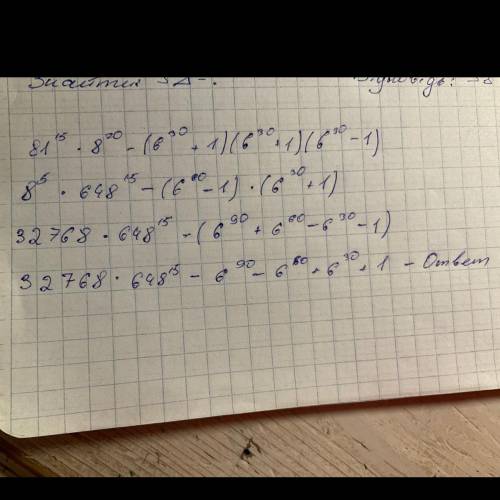 Знайти
81¹⁵ · 8²⁰ - (6³⁰ + 1)(6³⁰ + 1)(6³⁰ - 1)
8⁵ · 648¹⁵ - (6⁶⁰ - 1) · (6³⁰ + 1)
32768 · 648¹⁵ - (6⁹⁰ + 6⁶⁰ - 6³⁰ - 1)
32768 · 648¹⁵ - 6⁹⁰ - 6⁶⁰ + 6³⁰ + 1 - Ответ